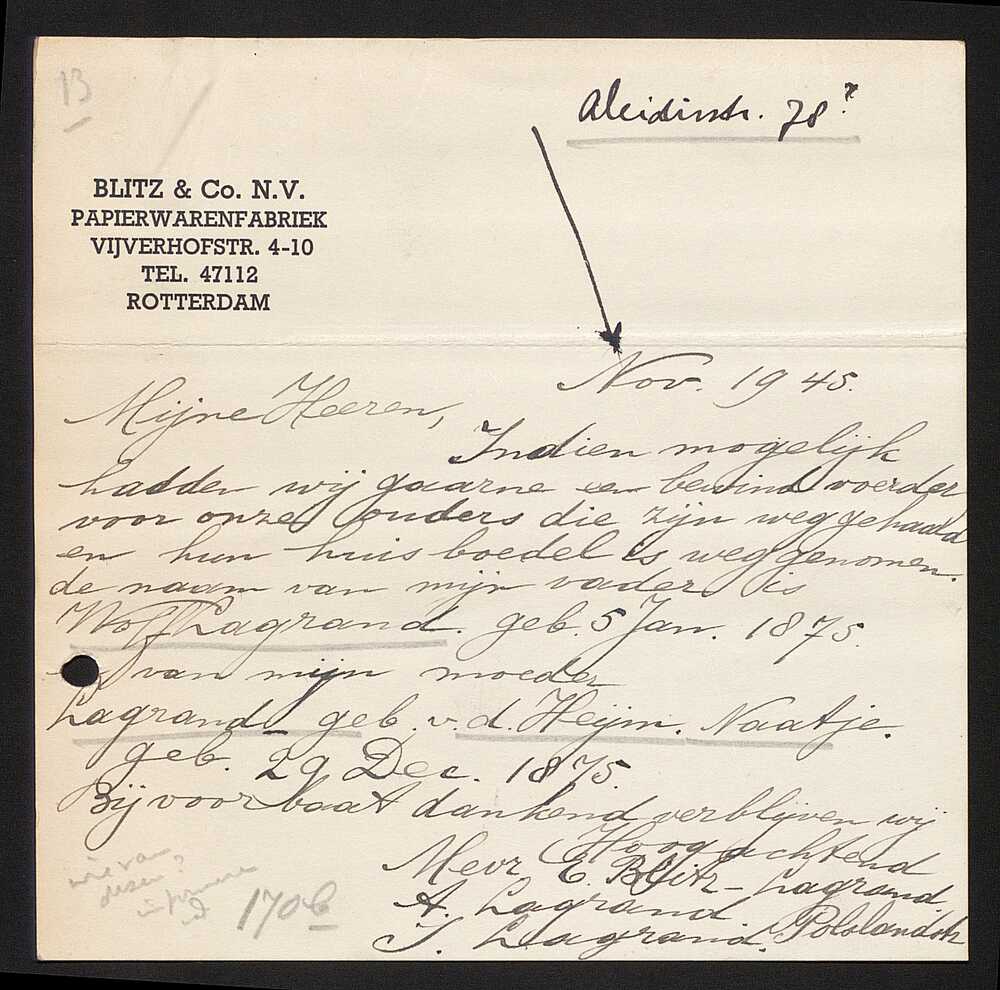 13
Aleidisstr. 78?
BLITZ & Co. N.V.
PAPIERWARENFABRIEK
VIJVERHOFSTR. 4-10
TEL. 47112
ROTTERDAM
Nov. 1945.
Mijne Heeren,
Indien mogelijk
hadden wij gaarne een bewindvoerder
voor onze ouders die zijn weggehaald
en hun huisboedel is weggenomen.
de naam van mijn vader is
Wolf Lagrand. geb. 5 Jan. 1875.
van mijn moeder
Lagrand geb. v. d. Heijm. Naatje.
geb. 29 Dec. 1875.
Bij voorbaat dankend verblijven wij
Hoogachtend
Mevr E. Blitz-Lagrand.
A. Lagrand.
J. Lagrand.
wie van
deze?